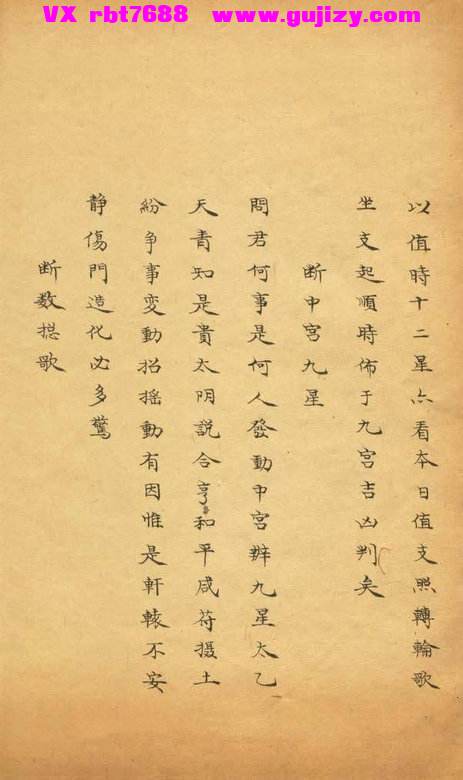 VX rbt7688 www.gujizy.com
以值時十二星亦看夲日值支照轉輪歌
坐支起順時佈于九宮吉凶判矣
断中宮九星
問君何事是何人發動中宮辨九星太乙
天青知是貴太阴説合亨和平咸符摄土
紛争事変動招摇動有因惟是軒轅不安
静傷門造化必多驚
断数捴歌